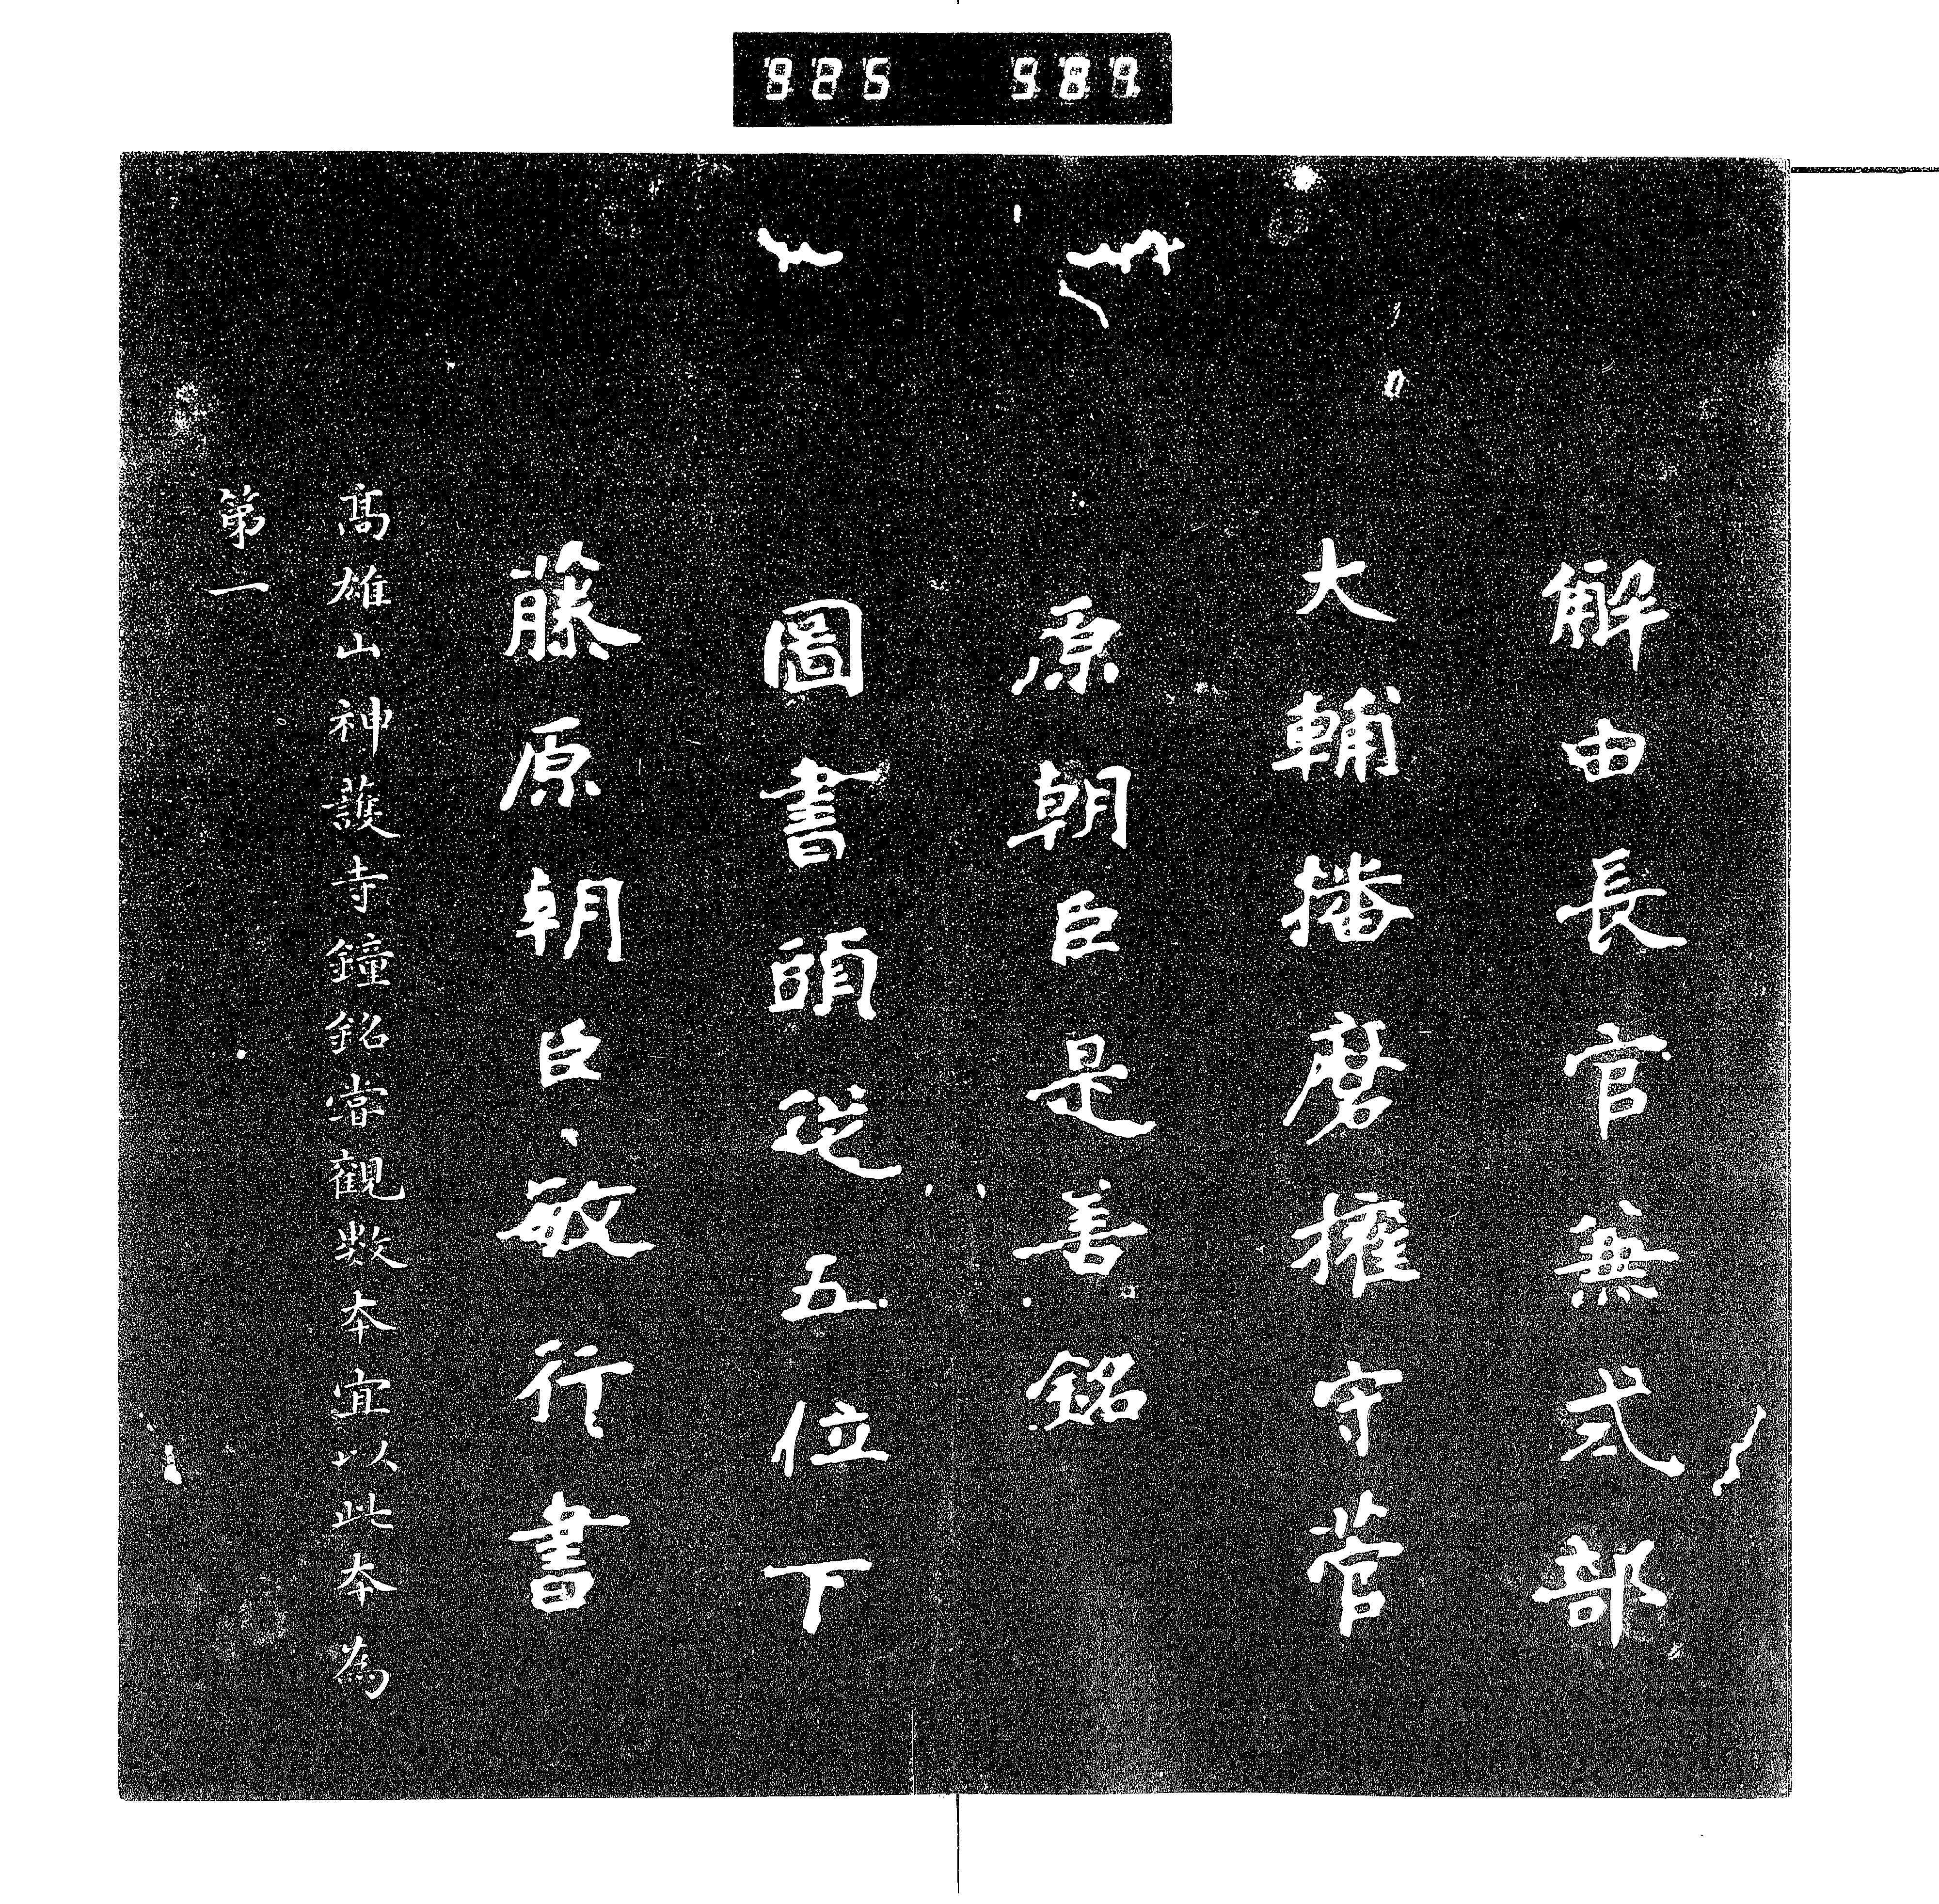 925 587
解由長官無式部
大輔播磨權守菅
原朝臣是善銘
圖書頭從五位下
藤原朝臣敏行書
高雄山神護寺鐘銘嘗觀數本宜以此本為
第一